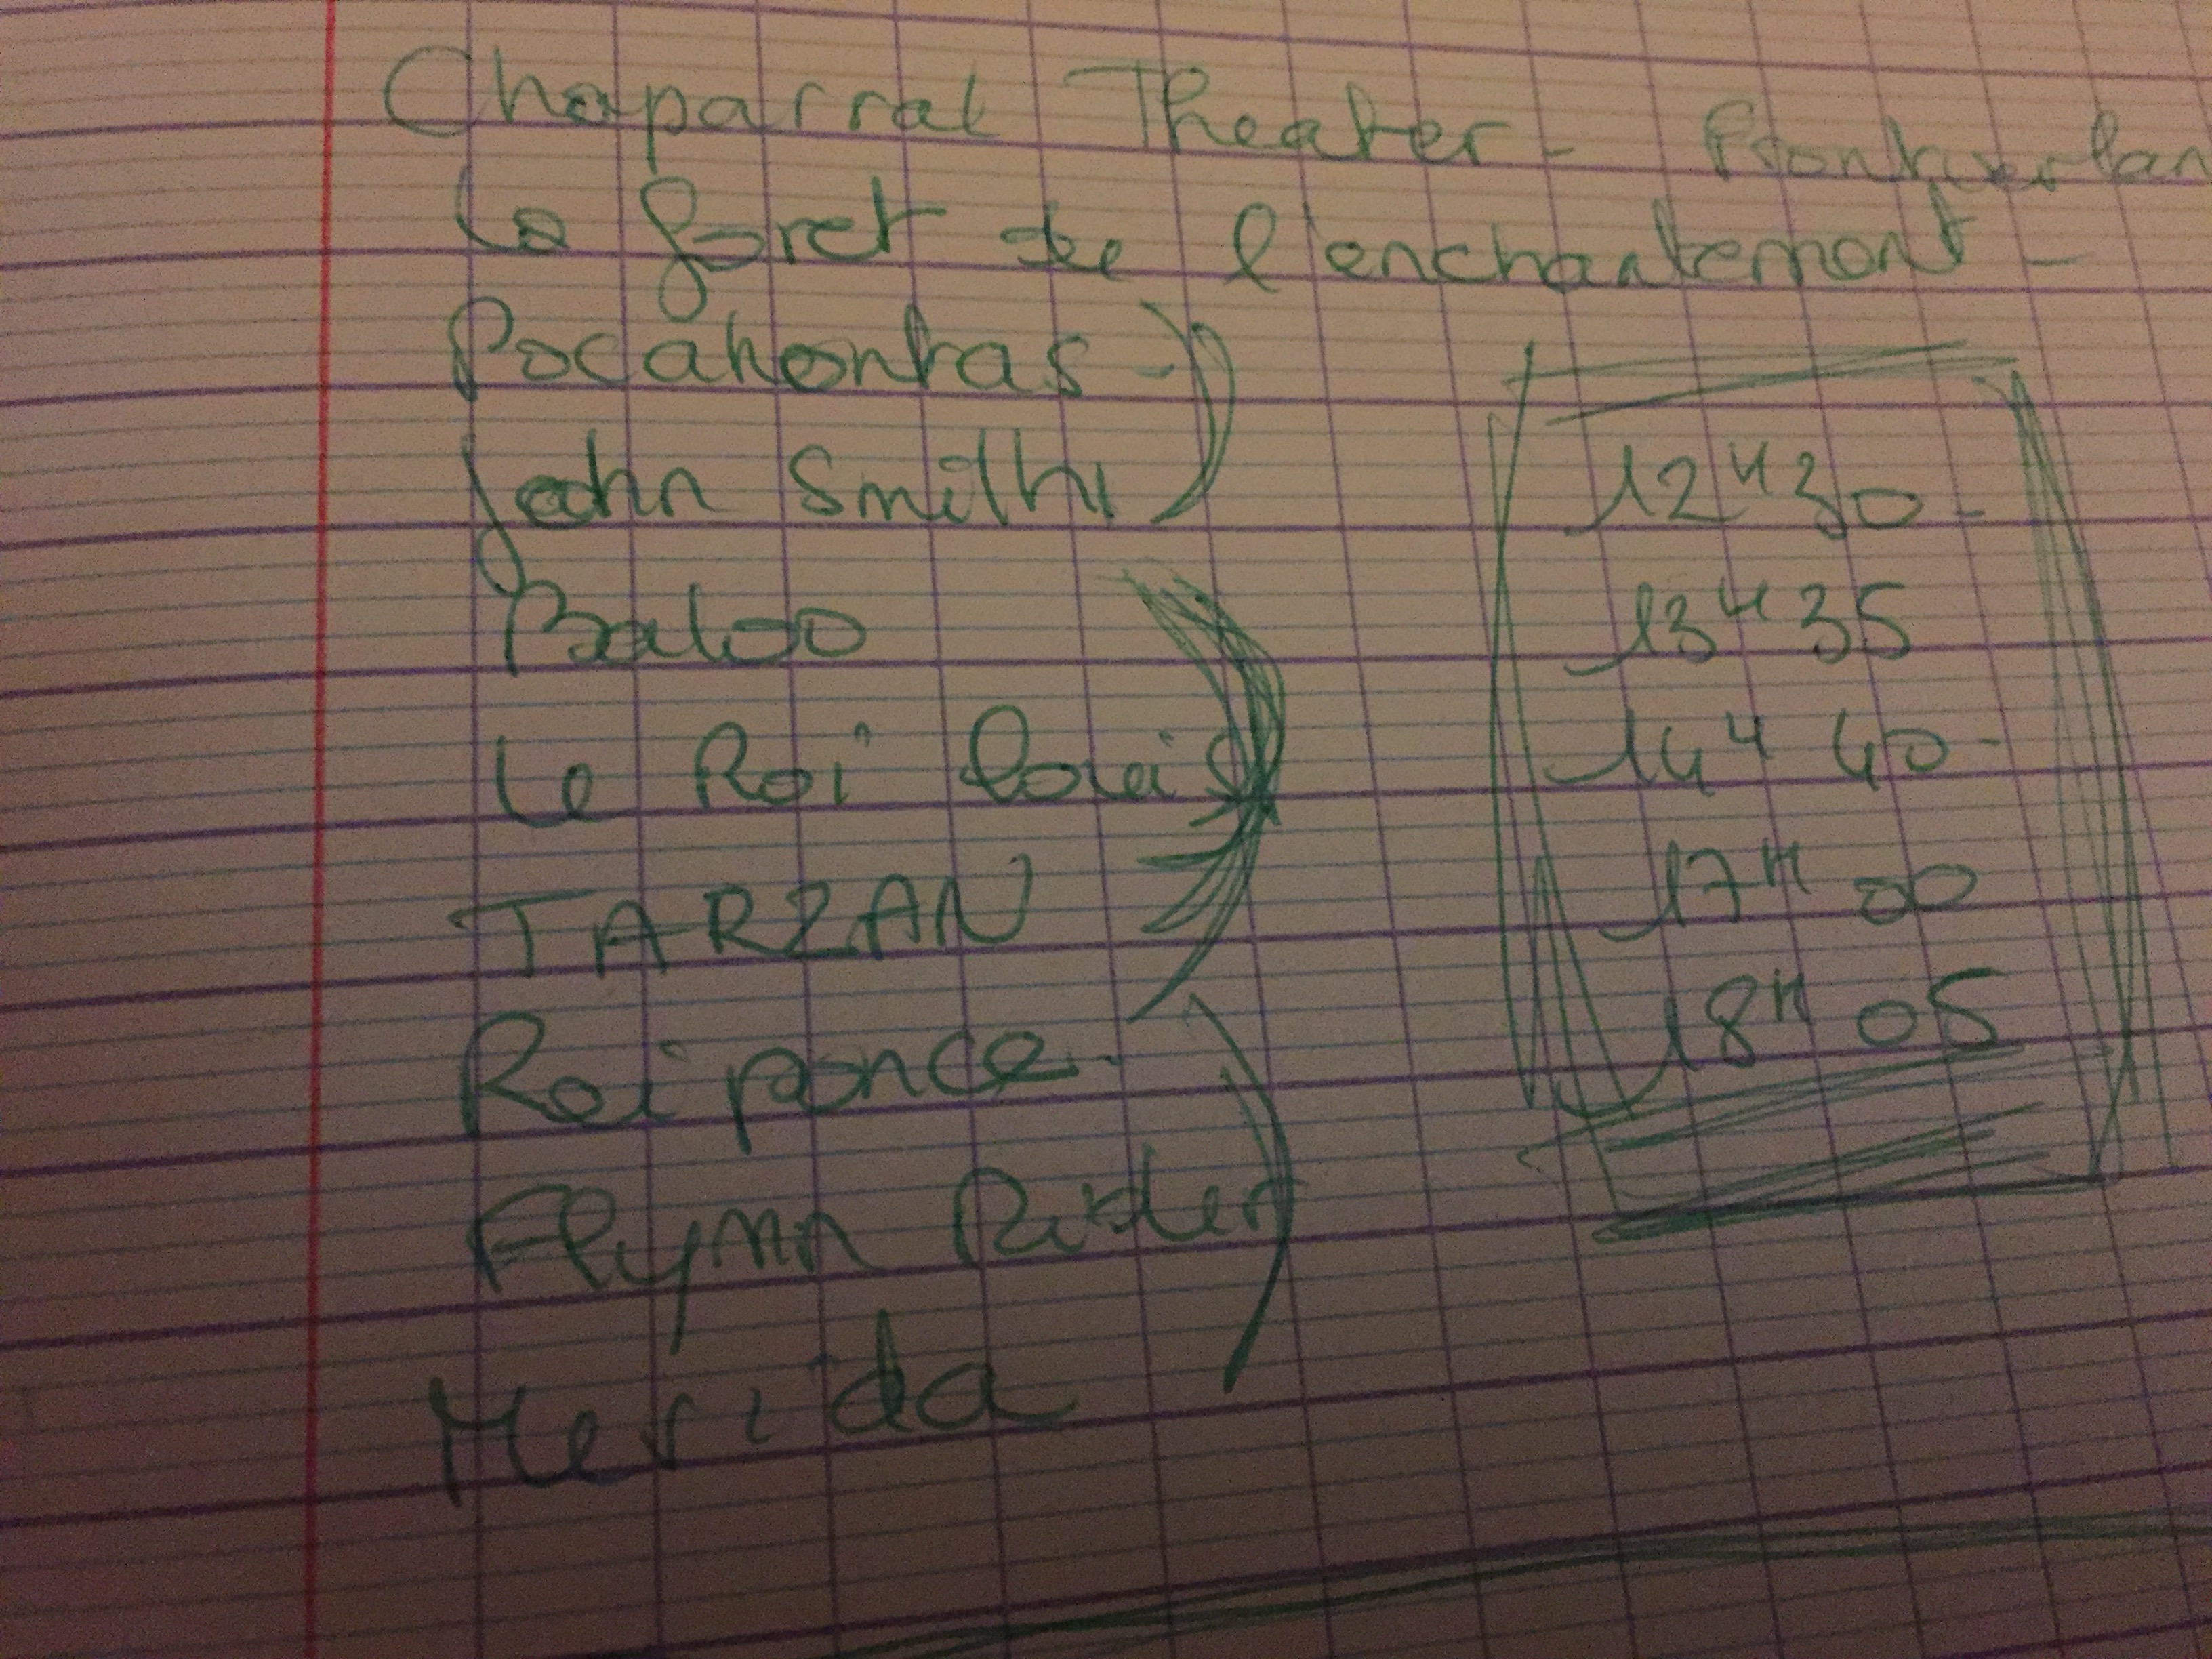 Chaparral Theater - Frontierlan
La foret de l'enchantement -
Pocahontas -
John Smith
Baloo
Le Roi louis
TARZAN
Raiponce -
Flynn Rider
Merida
12H30 -
13H35
14H40 -
17H00
18H05